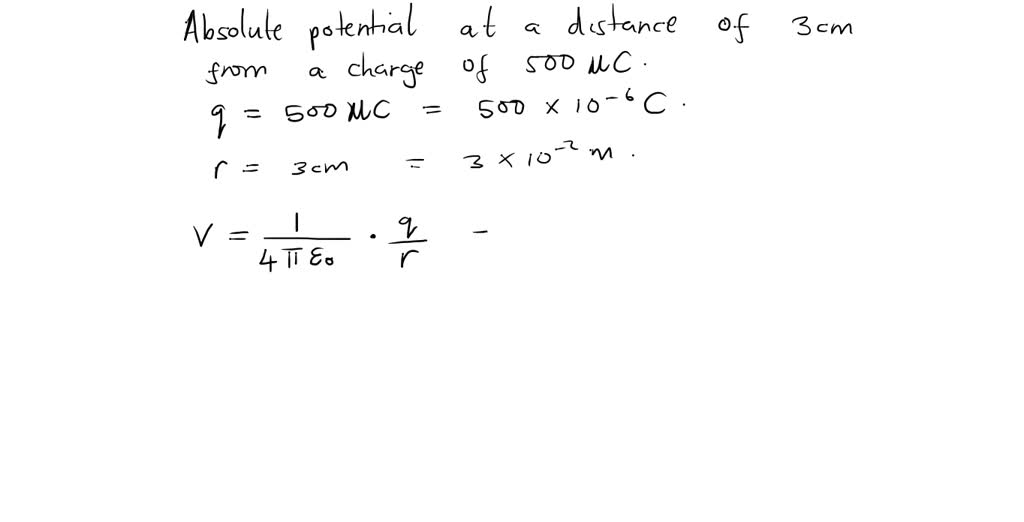 Absolute potential at a distance of 3cm
from a charge of 500 μC.
q = 500 μC = 500 × 10⁻⁶ C.
r = 3cm = 3 × 10⁻² m.
V = 1/4πε₀ · q/r -